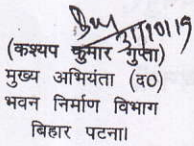 21/10/19
(कश्यप कुमार गुप्ता)
मुख्य अभियंता (द०)
भवन निर्माण विभाग
बिहार पटना।